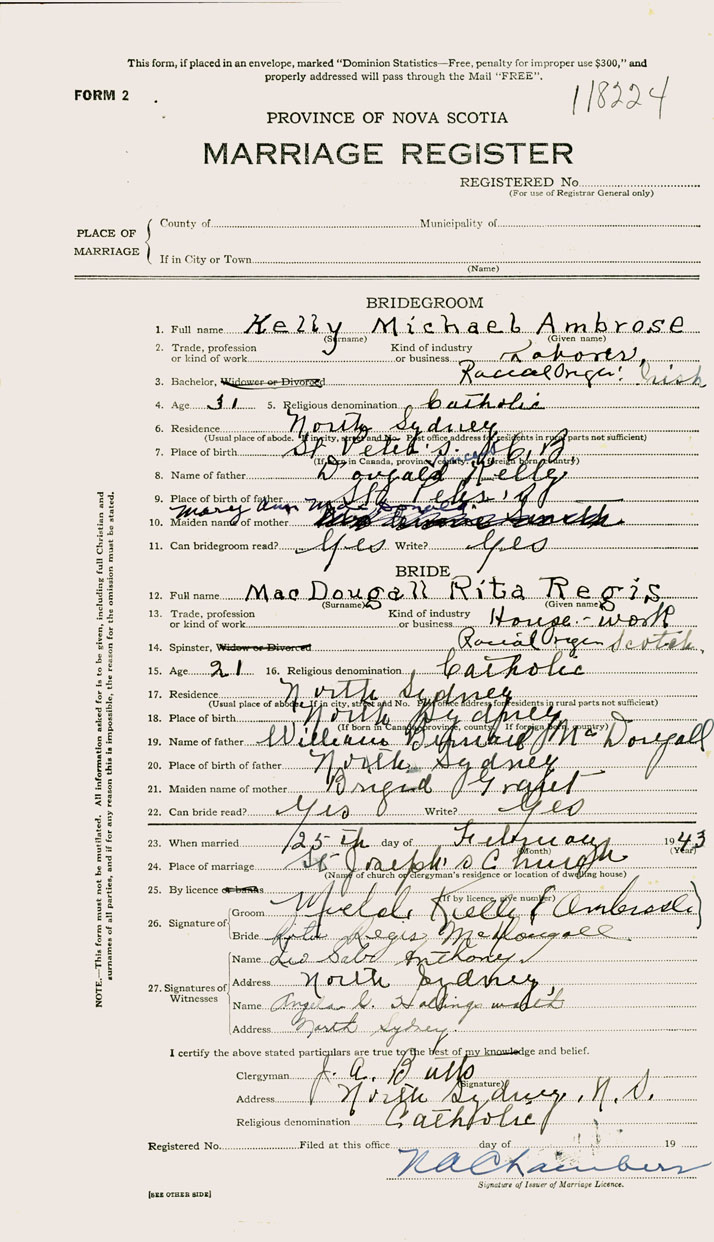 This form, if placed in an envelope, marked "Dominion Statistics—Free, penalty for improper use $300," and
properly addressed will pass through the Mail "FREE".
FORM 2
118224
PROVINCE OF NOVA SCOTIA
MARRIAGE REGISTER
REGISTERED No.
(For use of Registrar General only)
PLACE OF MARRIAGE
County of Municipality of
If in City or Town
(Name)
BRIDEGROOM
1. Full name Kelly Michael Ambrose
(Surname) (Given name)
2. Trade, profession or kind of work Kind of industry or business Laborer
Racial Origin: Irish
3. Bachelor, Widower or Divorced
4. Age 31 5. Religious denomination Catholic
6. Residence North Sydney
(Usual place of abode. If in city, street and No. Post office address for residents in rural parts not sufficient)
7. Place of birth St Peter's. C. B
(If born in Canada, province, county. If foreign born, country)
8. Name of father Dougald Kelly
9. Place of birth of father St. Peter's
Mary Ann MacDonald
10. Maiden name of mother
11. Can bridegroom read? Yes Write? Yes
BRIDE
12. Full name MacDougall Rita Regis
(Surname) (Given name)
13. Trade, profession or kind of work Kind of industry or business House-work
Racial Origin Scotch
14. Spinster, Widow or Divorced
15. Age 21 16. Religious denomination Catholic
17. Residence North Sydney
(Usual place of abode. If in city, street and No. Post office address for residents in rural parts not sufficient)
18. Place of birth North Sydney
(If born in Canada, province, county. If foreign born, country)
19. Name of father William Bernard McDougall
20. Place of birth of father North Sydney
21. Maiden name of mother Brigid Grant
22. Can bride read? Yes Write? Yes
23. When married 25th day of February 1943
(Month) (Year)
24. Place of marriage St Joseph's Church
(Name of church or clergyman's residence or location of dwelling house)
25. By licence or banns
(If by licence, give number)
26. Signature of
Groom Kelly (Ambrose)
Bride Rita Regis McDougall
27. Signatures of Witnesses
Name Leo Anthony
Address North Sydney,
Name Angela G. Hollingsworth
Address North Sydney.
I certify the above stated particulars are true to the best of my knowledge and belief.
Clergyman J. A. Butts
(Signature)
Address North Sydney, N. S.
Religious denomination Catholic
Registered No. Filed at this office day of 19
N A Chambers
Signature of Issuer of Marriage Licence.
[SEE OTHER SIDE]
NOTE.—This form must not be mutilated. All information asked for is to be given, including full Christian and
surnames of all parties, and if for any reason this is impossible, the reason for the omission must be stated.